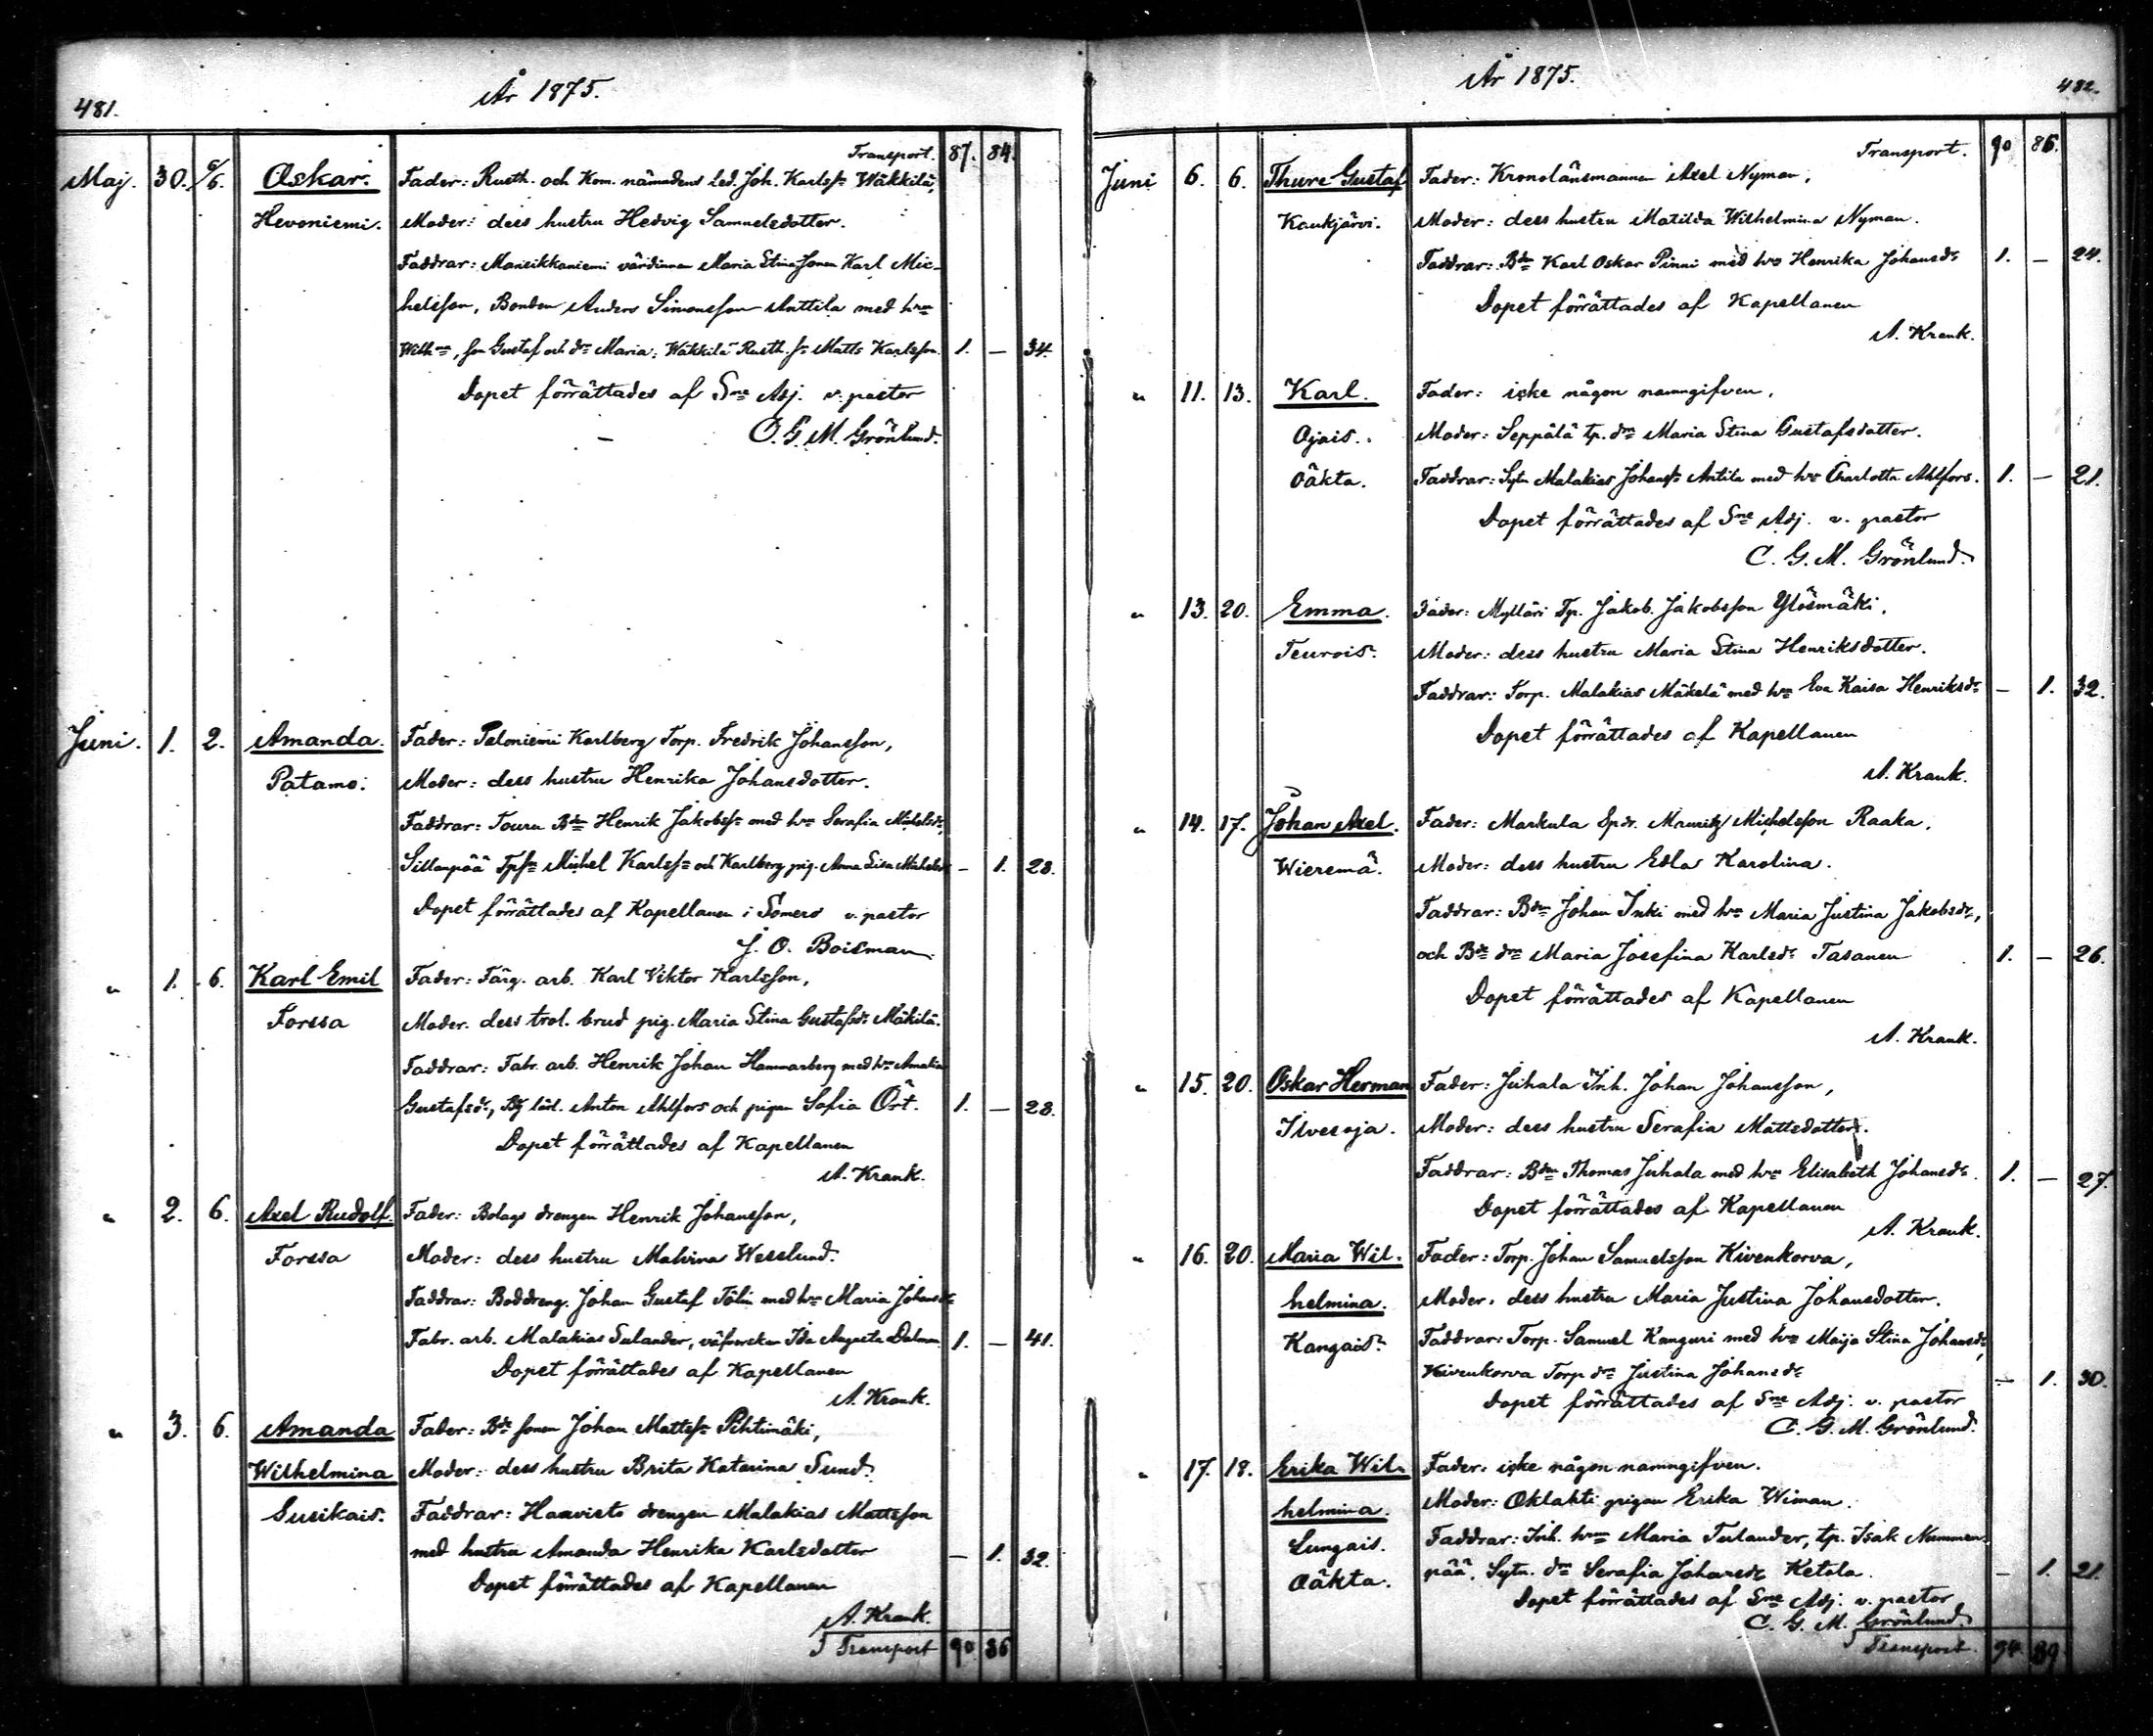 481.
År 1875.
Transport. 87. 84.
Maj. 30. 6/6. Oskar. Fader: Rusth. och Kom. nämndens led. Joh. Karlss: Wäkkilä,
Hevoniemi. Moder: dess hustru Hedvig Samuelsdotter.
Faddrar: Mansikkaniemi värdinnan Maria Stina, sonen Karl Mic-
helsson, Bonden Anders Simonsson Anttila med hru
Wilh:na, son Gustaf och dr Maria; Wäkkilä Rusth. s: Matts Karlsson. 1. — 34.
Dopet förrättades af Sne Adj. v. pastor
C. G. M. Grönlund.
Juni. 1. 2. Amanda. Fader: Paloniemi Karlberg Torp. Fredrik Johansson,
Patamo. Moder: dess hustru Henrika Johansdotter.
Faddrar: Touru Bdn Henrik Jakobss: med hru Serafia Michelsdr,
Sillanpää Tpsn Michel Karlss: och Karlberg pig. Anna Lisa Michelsdr — 1. 28.
Dopet förrättades af Kapellanen i Somero v. pastor
J. O. Boisman.
" 1. 6. Karl Emil Fader: Färg. arb. Karl Viktor Karlsson,
Forssa Moder. dess trol. brud pig. Maria Stina Gustafsdr Mäkilä.
Faddrar: Fabr. arb. Henrik Johan Hammarberg med hru Amalia
Gustafsdr, lärl. Anton Ahlfors och pigan Sofia Öst. 1. — 28.
Dopet förrättades af Kapellanen
A. Krank.
" 2. 6. Axel Rudolf. Fader: Bolags drengen Henrik Johansson,
Forssa Moder: dess hustru Malvina Wesslund.
Faddrar: Boddreng. Johan Gustaf Tölin med hru Maria Johansdr
Fabr. arb. Malakias Salander, väfverskan Ida Augusta Dalman 1. — 41.
Dopet förrättades af Kapellanen
A. Krank.
" 3. 6. Amanda Fader: Bde sonen Johan Mattss: Pihtimäki,
Wilhelmina Moder: dess hustru Brita Katarina Sund.
Susikais. Faddrar: Haavisto drengen Malakias Mattsson
med hustru Amanda Henrika Karlsdotter — 1. 32.
Dopet förrättades af Kapellanen
A. Krank.
Transport 90 86
År 1875.
482.
Transport. 90 86.
Juni 6. 6. Thure Gustaf Fader: Kronolänsmannen Axel Nyman,
Kaukjärvi. Moder: dess hustru Matilda Wilhelmina Nyman.
Faddrar: Bdn Karl Oskar Pinni med hru Henrika Johansdr 1. — 24.
Dopet förrättades af Kapellanen
A. Krank.
" 11. 13. Karl. Fader: icke någon namngifven.
Ojais. Moder: Seppälä tp. dr Maria Stina Gustafsdotter.
Oäkta. Faddrar: Sytn Malakias Johanss: Antila med hru Charlotta Ahlfors. 1. — 21.
Dopet förrättades af Sne Adj. v. pastor
C. G. M. Grönlund.
" 13. 20. Emma. Fader: Mylläri Tp. Jakob Jakobsson Ylösmäki,
Teurois. Moder: dess hustru Maria Stina Henriksdotter.
Faddrar: Torp. Malakias Mäkelä med hru Eva Kaisa Henriksdr — 1. 32.
Dopet förrättades af Kapellanen
A. Krank.
" 14. 17. Johan Axel. Fader: Markula Spdr. Mauritz Michelsson Raaka.
Wieremä. Moder: dess hustru Edla Karolina.
Faddrar: Bdn Johan Inki med hru Maria Justina Jakobsdr,
och Bde dr Maria Josefina Karlsdr Tasanen 1. — 26.
Dopet förrättades af Kapellanen
A. Krank.
" 15. 20. Oskar Herman Fader: Juhala Inh. Johan Johansson,
Ilvesoja. Moder: dess hustru Serafia Mattsdotter.
Faddrar: Bdn Thomas Juhala med hru Elisabeth Johansdr. 1. — 27.
Dopet förrättades af Kapellanen
A. Krank.
" 16. 20. Maria Wil- Fader: Torp. Johan Samuelsson Kivenkorva,
helmina. Moder. dess hustru Maria Justina Johansdotter.
Kangais. Faddrar: Torp. Samuel Kanguri med hru Maija Stina Johansdr,
Kivenkorva Torp dr Justina Johansdr — 1. 30.
Dopet förrättades af Sne Adj. v. pastor
C. G. M. Grönlund.
" 17. 18. Erika Wil- Fader: icke någon namngifven.
helmina. Moder: Oklahti pigan Erika Wiman.
Lungais. Faddrar: Inh. hru Maria Tulander, tp. Isak Nummen-
Oäkta. pää. Sytn. dr Serafia Johansdr Ketola. — 1. 21.
Dopet förrättades af Sne Adj. v. pastor
C. G. M. Grönlund.
Transport. 94. 89.